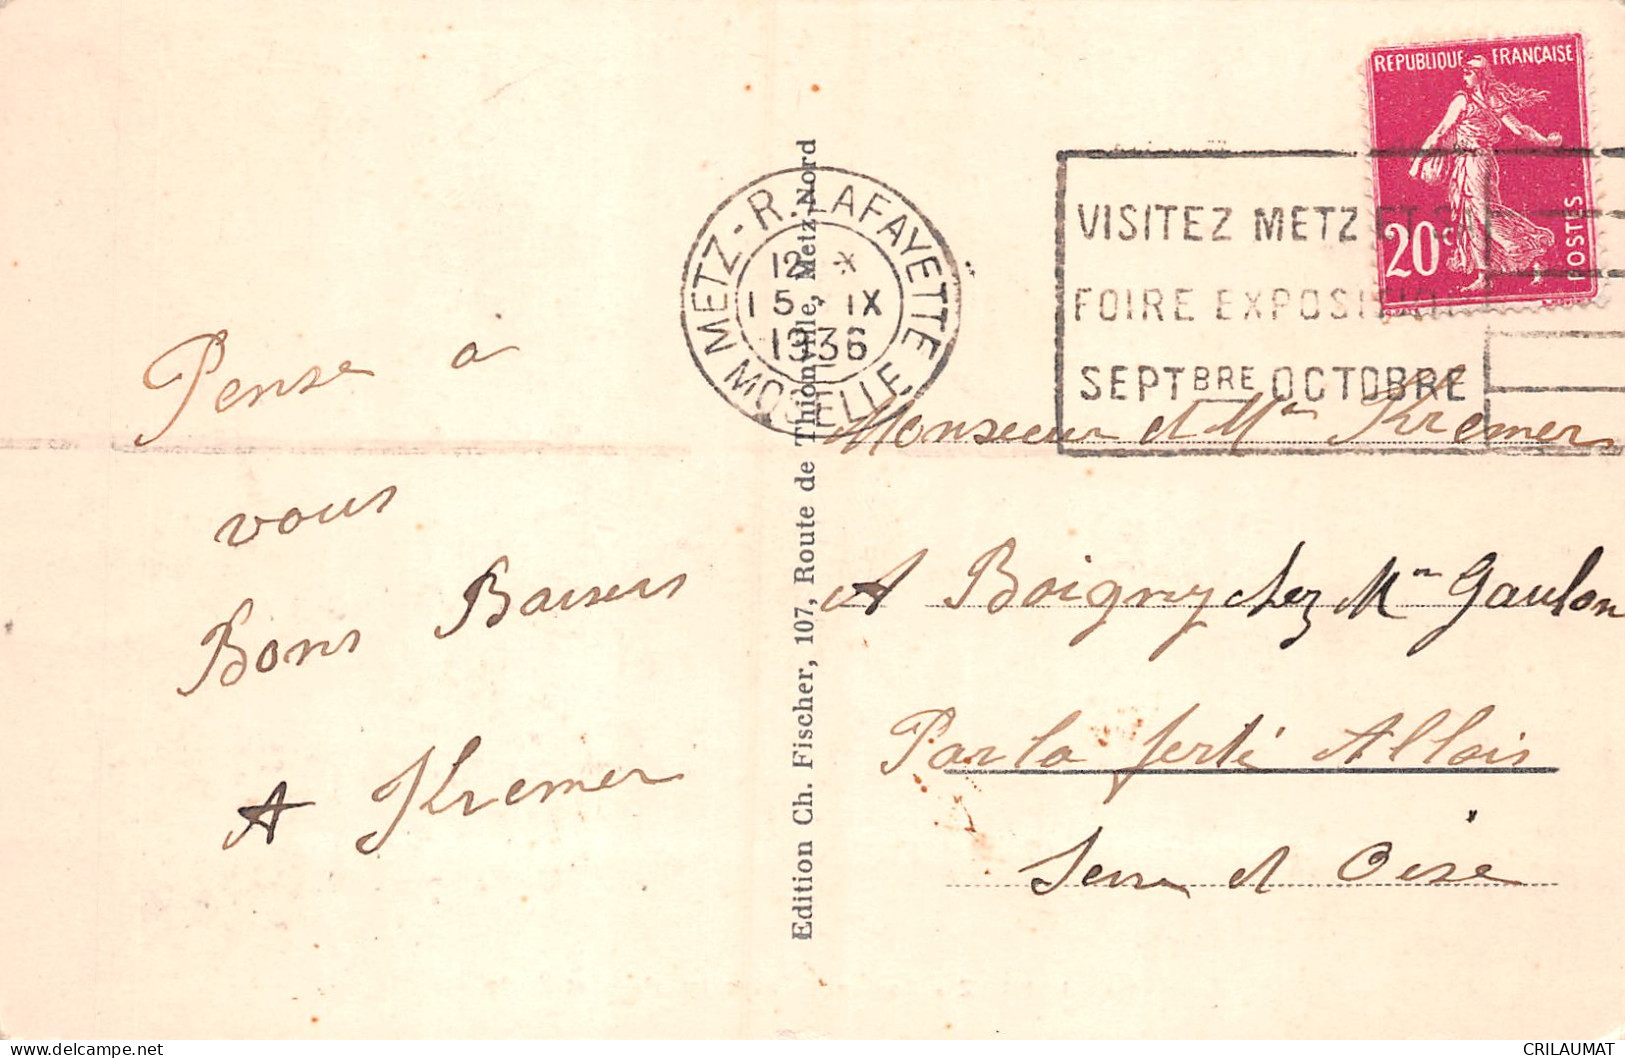 Pense à
vous
Bons Baisers
A Kremer
Edition Ch. Fischer, 107, Route de Thionville, Metz-Nord
METZ-R. LAFAYETTE
12 *
15 IX
1936
MOSELLE
VISITEZ METZ ET SA
FOIRE EXPOSITION
SEPTBRE OCTOBRE
REPUBLIQUE FRANÇAISE
20c
POSTES
Monsieur et Mm Kremer
A Boigny chez Mm Gaulon
Par la ferté Allais
Seine et Oise
CRILAUMAT